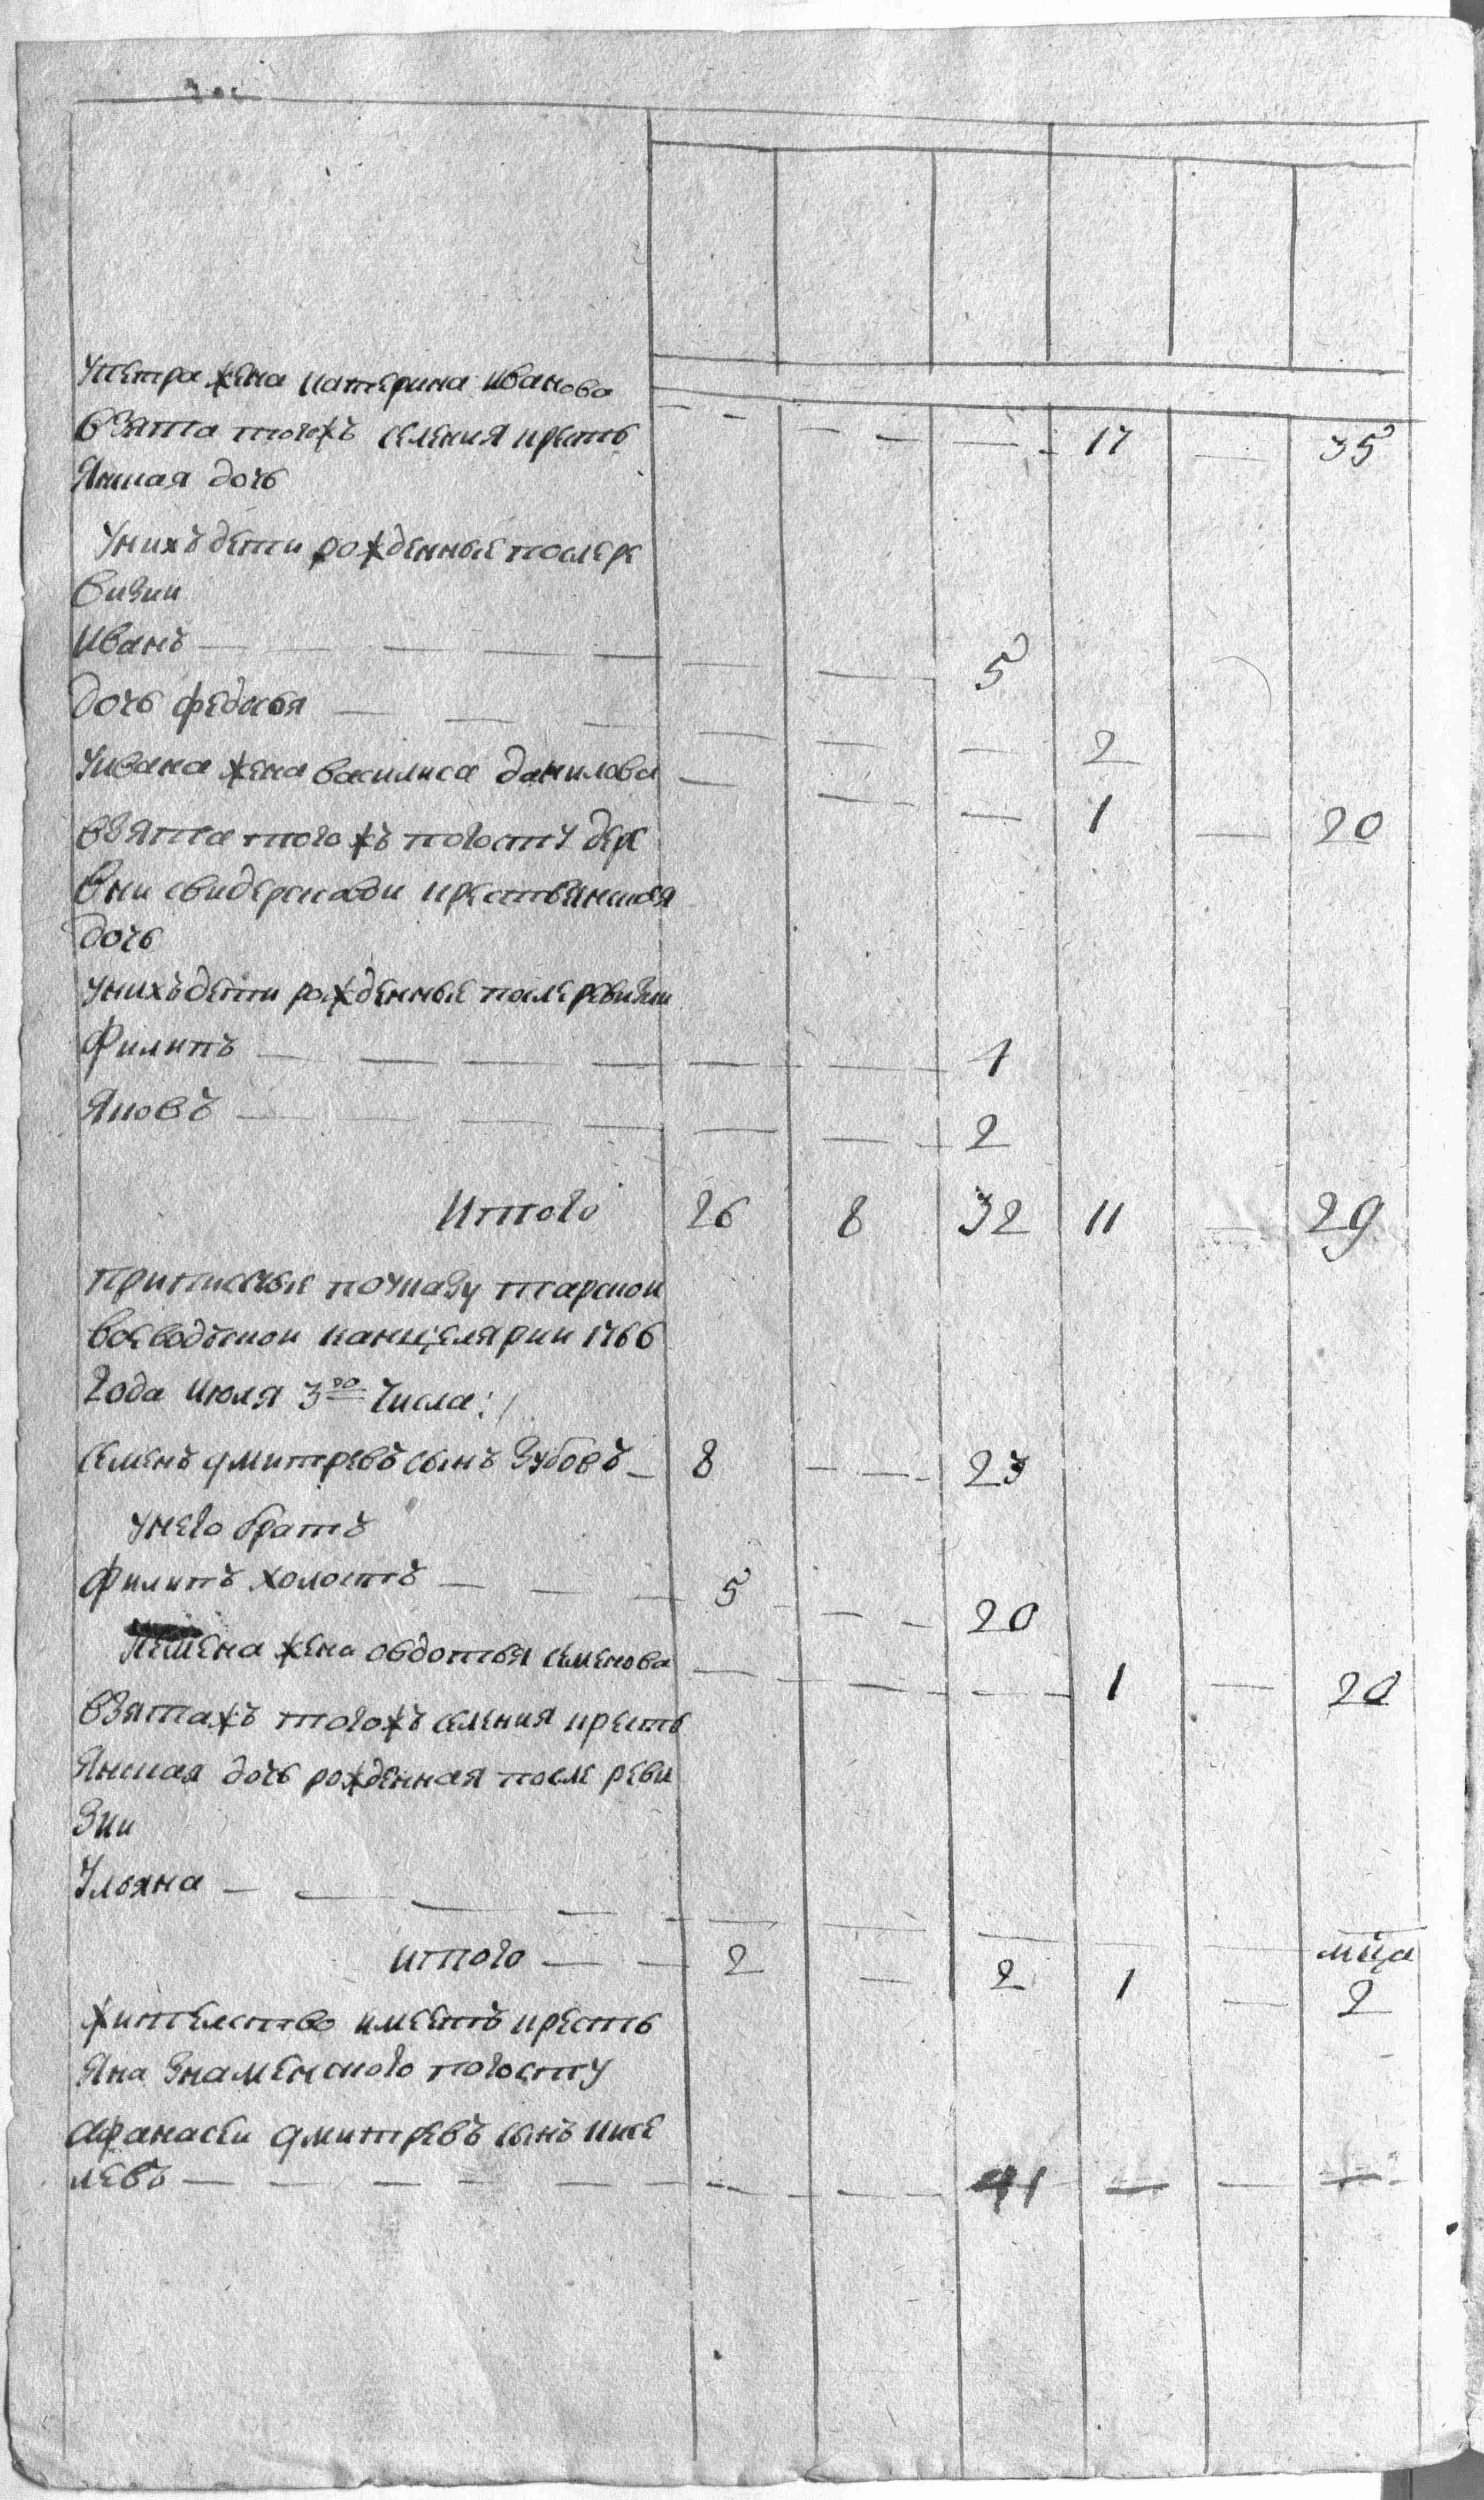 Упетра жена катерина иванова
взята тогожъ селения кресть 17 35
Янская дочь
Унихъ дети рожденные после ре
визии
Иванъ 5
дочь федосья 2
Уивана жена василиса данилова
взята того жъ погосту дере 1 20
вни свидерской крестьянская
дочь
унихъ дети рожденные после ревизии
Филипъ 4
Яковъ 2
Итого 26 8 32 11 29
приписные поуказу тарской
воеводской канцелярии 1766
года июля 3го числа:
семенъ дмитревъ сынъ Зубовъ 8 23
унего братъ
филипъ холостъ 5 20
семена жена овдотья семенова 1 20
взятажъ тогожъ селения кресть
Янская дочь рожденная после реви
зии
Ульяна мца
итого 2 2 1 2
жителство имеетъ кресть
Яна Знаменского погосту
афанасеи дмитревъ сынъ кисе
левъ 41